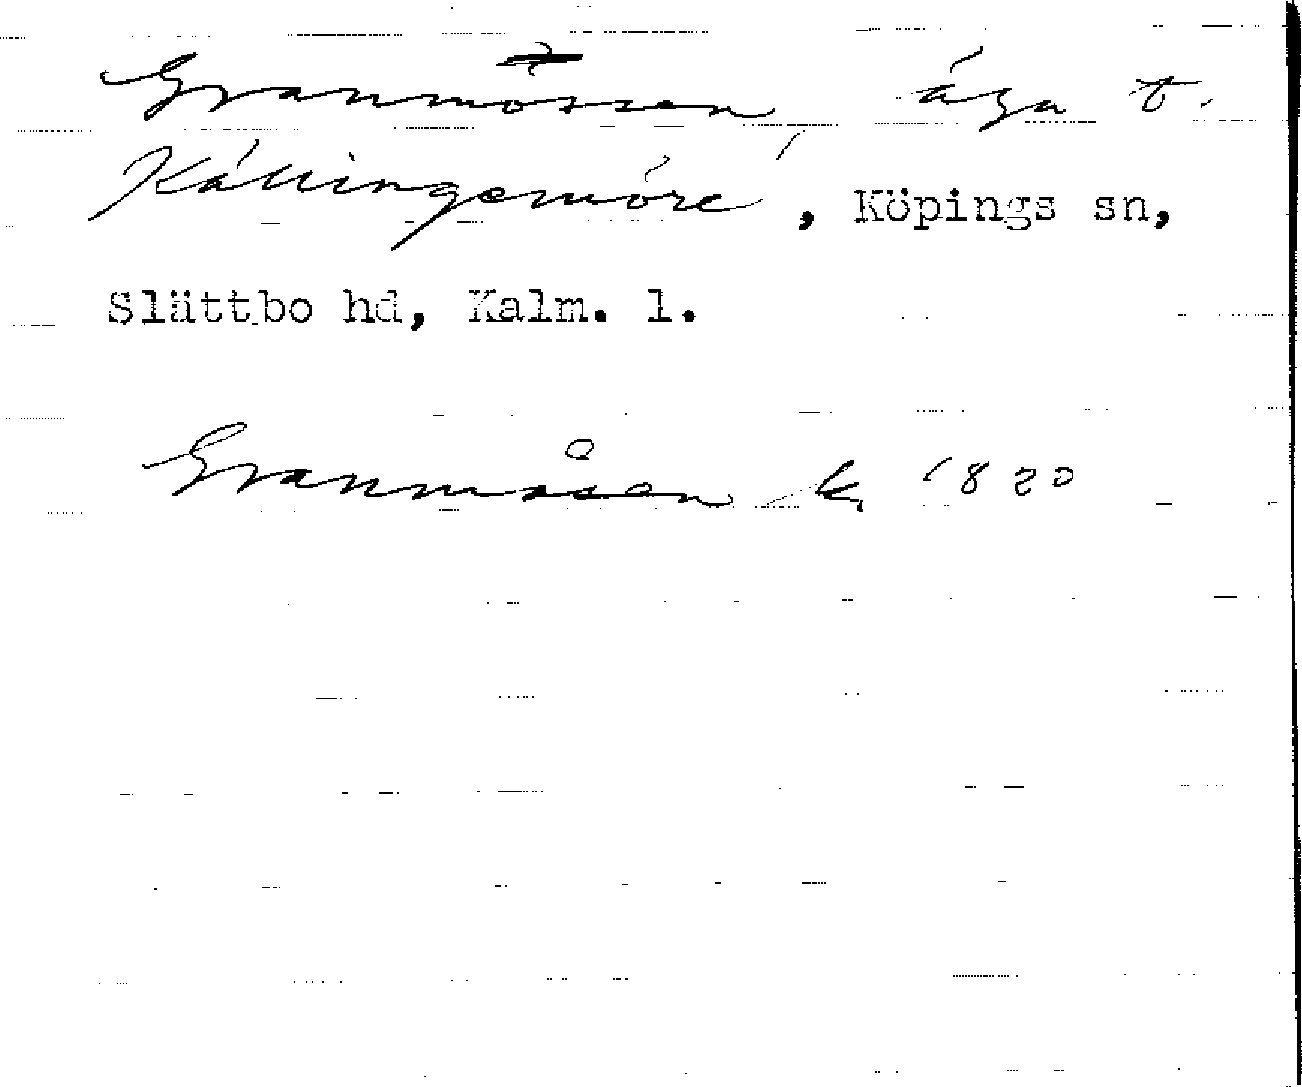 Granmossen, äga t.
Källingemöre, Köpings sn,
Slättbo hd, Kalm. l.
Granmåsen k. 1820